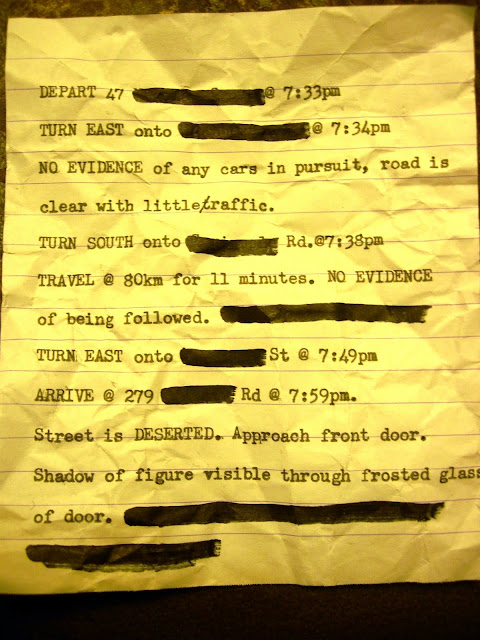 DEPART 47 @ 7:33pm
TURN EAST onto @ 7:34pm
NO EVIDENCE of any cars in pursuit, road is
clear with little/traffic.
TURN SOUTH onto Rd.@7:38pm
TRAVEL @ 80km for 11 minutes. NO EVIDENCE
of being followed.
TURN EAST onto St @ 7:49pm
ARRIVE @ 279 Rd @ 7:59pm.
Street is DESERTED. Approach front door.
Shadow of figure visible through frosted glass
of door.